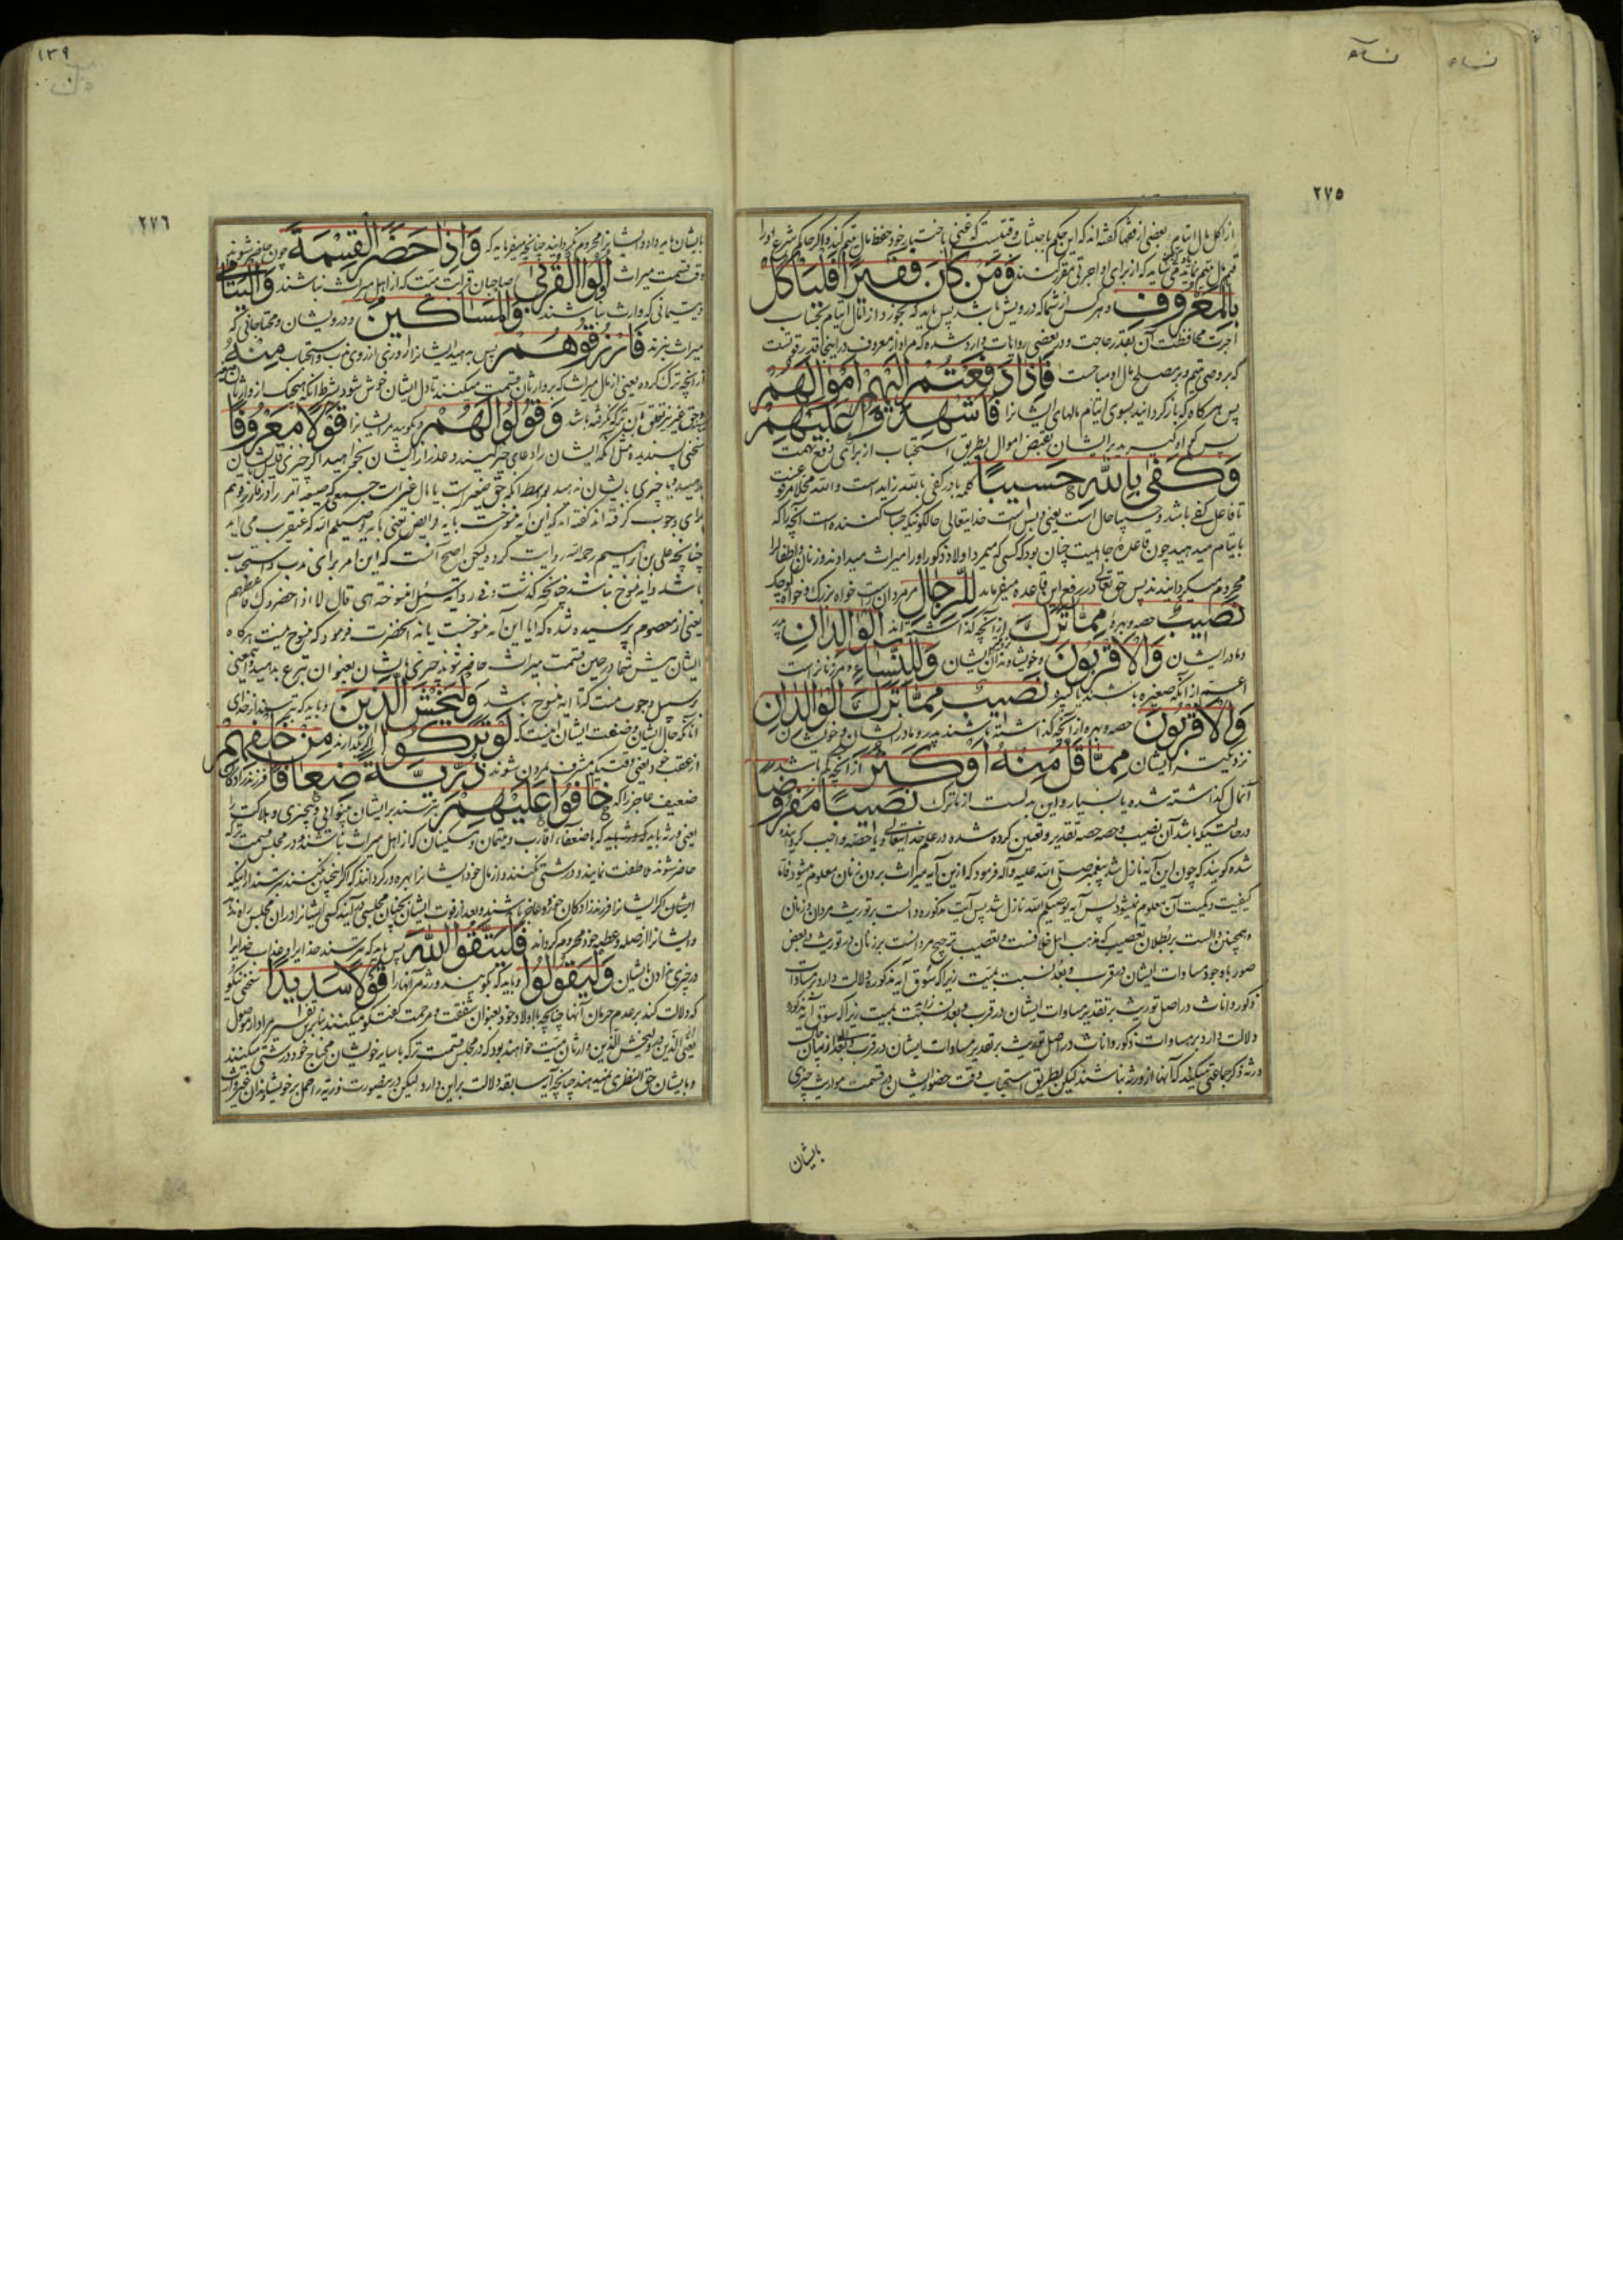 نساء
نسآء
٢٧٥
از اکل مال ایتام و بعضی از فقها کفته اند که این حکم
قیم مال یتیم نماید می باید که از برای او اجرتی مقرر کنند وَمَنْ كَانَ فَقيرًا فَلْيَأْكُلْ
بِالْمَعْرُوفِ و هر کس از شما که درویش باشد پس باید که بخورد از مال ایتام
اجرت محافظت آن بقدر حاجت و در بعضی روایات وارد شده که مراد از معروف در اینجا قدر قوتست
که بر وصی یتیم و بر مصلح مال او مباحست فَاِذَا دَفَعْتُمْ اِلَيْهِمْ اَمْوَالَهُمْ
پس هرکاه که بازکردانید بسوی ایتام مالهای ایشانرا فَاَشْهِدُوا عَلَيْهِمْ
پس کواه کیرید بر ایشان بقبض اموال بطریق استحباب از برای دفع تهمت
وَكَفٰى بِاللّٰهِ حَسيبًا کلمه با در کفی بالله زایداست و الله محلا مرفوعست
تا فاعل کفی باشد و حسیبا حال است یعنی و بس است خدایتعالی حالکونیکه حساب کننده است آنچه را که
بایتام میدهید چون قاعده جاهلیت چنان بود که کسی که میمرد اولاد ذکور او را میراث میدادند و زنان و اطفال را
محروم میکردانیدند پس حق تعالی در رفع این قاعده میفرماید لِلرِّجَالِ مر مردان راست خواه بزرک و خواه کوچک
نَصيبٌ حصه و بهره مِمَّا تَرَكَ از آنچه کذاشته اند الْوَالِدَانِ پدر
و مادر ایشان وَالْاَقْرَبُونَ و خویشاوندان ایشان وَلِلنِّسَاءِ و مر زنانراست
اعم از آنکه صغیره باشند یا کبیره نَصيبٌ مِمَّا تَرَكَ الْوَالِدَانِ
وَالْاَقْرَبُونَ حصه و بهره از آنچه کذاشته باشند پدر و مادر ایشان و خویشان
نزدیکتر ایشان مِمَّا قَلَّ مِنْهُ اَوْ كَثُرَ از آنچه کم باشد
آنمال کذاشته شده یا بسیار و این بدلست از ما ترک نَصيبًا مَفْرُوضًا
درحالتیکه باشد آن نصیب و حصه حصه تقدیر و تعیین کرده شده در علم خدایتعالی و یا حصه واجب کردانیده
شده کویند که چون این آیه نازل شد پیغمبر صلی الله علیه و آله فرمود که ازین آیه میراث بردن زنان معلوم میشود فاما
کیفیت و کمیت آن معلوم نمیشود پس آیه یوصیکم الله نازل شد پس آیت مذکوره دالست بر توریث مردان و زنان
و همچنین دالست بر بطلان تعصیب که مذهب اهل خلافست و تعصیب ترجیح مردانست بر زنان در توریث در بعض
صور با وجود مساوات ایشان در قرب و بعد نسبت بمیت زیرا که سوق آیه مذکوره دلالت دارد بر مساوات
ذکور و اناث در اصل توریث بر تقدیر مساوات ایشان در قرب و بعد نسبت بمیت زیرا که سوق آیه مذکوره
دلالت دارد بر مساوات ذکور و اناث در اصل توریث بر تقدیر مساوات ایشان در قرب و بعد
ورثه ذکر جماعتی میکند که آنها از ورثه نباشند لیکن بطریق استحباب وقت حضور ایشان در قسمت مواریث چیزی
بایشان
١٣٩
٢٧٦
بایشان باید داد و ایشانرا محروم نکردانید چنانچه میفرماید که وَاِذَا حَضَرَ الْقِسْمَةَ چون حاضر شوند
وقت قسمت میراث اُولُوا الْقُرْبٰى صاحبان قرابت میت که از اهل میراث نباشند وَالْيَتَامٰى
و یتیمانی که وارث نباشند وَالْمَسَاكينُ و درویشان و محتاجانی که
میراث نبرند فَارْزُقُوهُمْ پس بدهید ایشانرا روزی از روی ندب و استحباب مِنْهُ
از آنچه ترک کرده یعنی از مال میراث که بر وارثان قسمت میکنند تا دل ایشان خوش شود
وَقُولُوا لَهُمْ و بکویید مر ایشانرا قَوْلًا مَعْرُوفًا
سخنی پسندیده مثل آنکه ایشان را دعای خیر کنید و عذر از ایشان بخواهید اگر چیزی قلیل بایشان
برای وجوب کرفته اند کفته اند که این آیه منسوخست بآیه فرایض یعنی بآیه یوصیکم الله که عنقریب می آید
چنانچه علی بن ابراهیم رحمه الله روایت کرده لیکن اصح آنست که این امر برای ندب و استحباب
باشد و آیه منسوخ نباشد چنانچه کذشت و فی روایة سئل امنسوخة هی قال لا اذا حضروک فاعطهم
یعنی از معصوم پرسیده شد که آیا این آیه منسوخست یا نه آنحضرت فرمود که منسوخ نیست هرکاه
ایشان پیش شما در حین قسمت میراث حاضر شوند چیزی بایشان بعنوان تبرع بدهید
بر سبیل وجوب نیست که تا آیه منسوخ باشد وَلْيَخْشَ الَّذينَ و باید که بترسند از خدای
آنانکه حال ایشان و صفت ایشان اینست که لَوْ تَرَكُوا اگر بگذارند مِنْ خَلْفِهِمْ
از عقب خود یعنی وقتیکه مشرف بمردن شوند ذُرِّيَّةً ضِعَافًا فرزندزادکان
ضعیف عاجز را که خَافُوا عَلَيْهِمْ بترسند بر ایشان بینوایی و بیچیزی و هلاکت را
یعنی ورثه باید که با ضعفاء اقارب و یتیمان و مسکینان که از اهل میراث نباشند و در مجلس قسمت ترکه
حاضر شوند ملاطفت نمایند و درشتی نکنند و از مال خود ایشانرا بهره ور کردانند که اگر چنین نکنند بترسند از اینکه
ایشان اگر ایشانرا فرزندزادکان خرد و عاجز باشند و بعد از فوت ایشان بچنان مجلسی در آیند کسی ایشانرا در آن مجلس راه ندهد
و ایشانرا از صله و عطیه خود محروم کرداند فَلْيَتَّقُوا اللّٰهَ پس باید که بترسند خدایرا و عذاب خدایرا
در چیزی ندادن بایشان وَلْيَقُولُوا و باید که بکویند ورثه مر آنها را قَوْلًا سَديدًا سخنی نیکو
که دلالت کند بر عدم حرمان آنها چنانچه با اولاد خود بعنوان شفقت و مرحمت کفتکو میکنند بنابرین تفسیر مراد از موصول
یعنی الذین در ولیخش الذین وارثان میت خواهند بود که در مجلس قسمت ترکه با سایر خویشان محتاج خود درشتی میکنند
و بایشان حق النظری نمیدهند چنانچه آیه سابقه دلالت بر این دارد لیکن درینصورت ذریه را حمل بر خویشاوندان غیر وارث